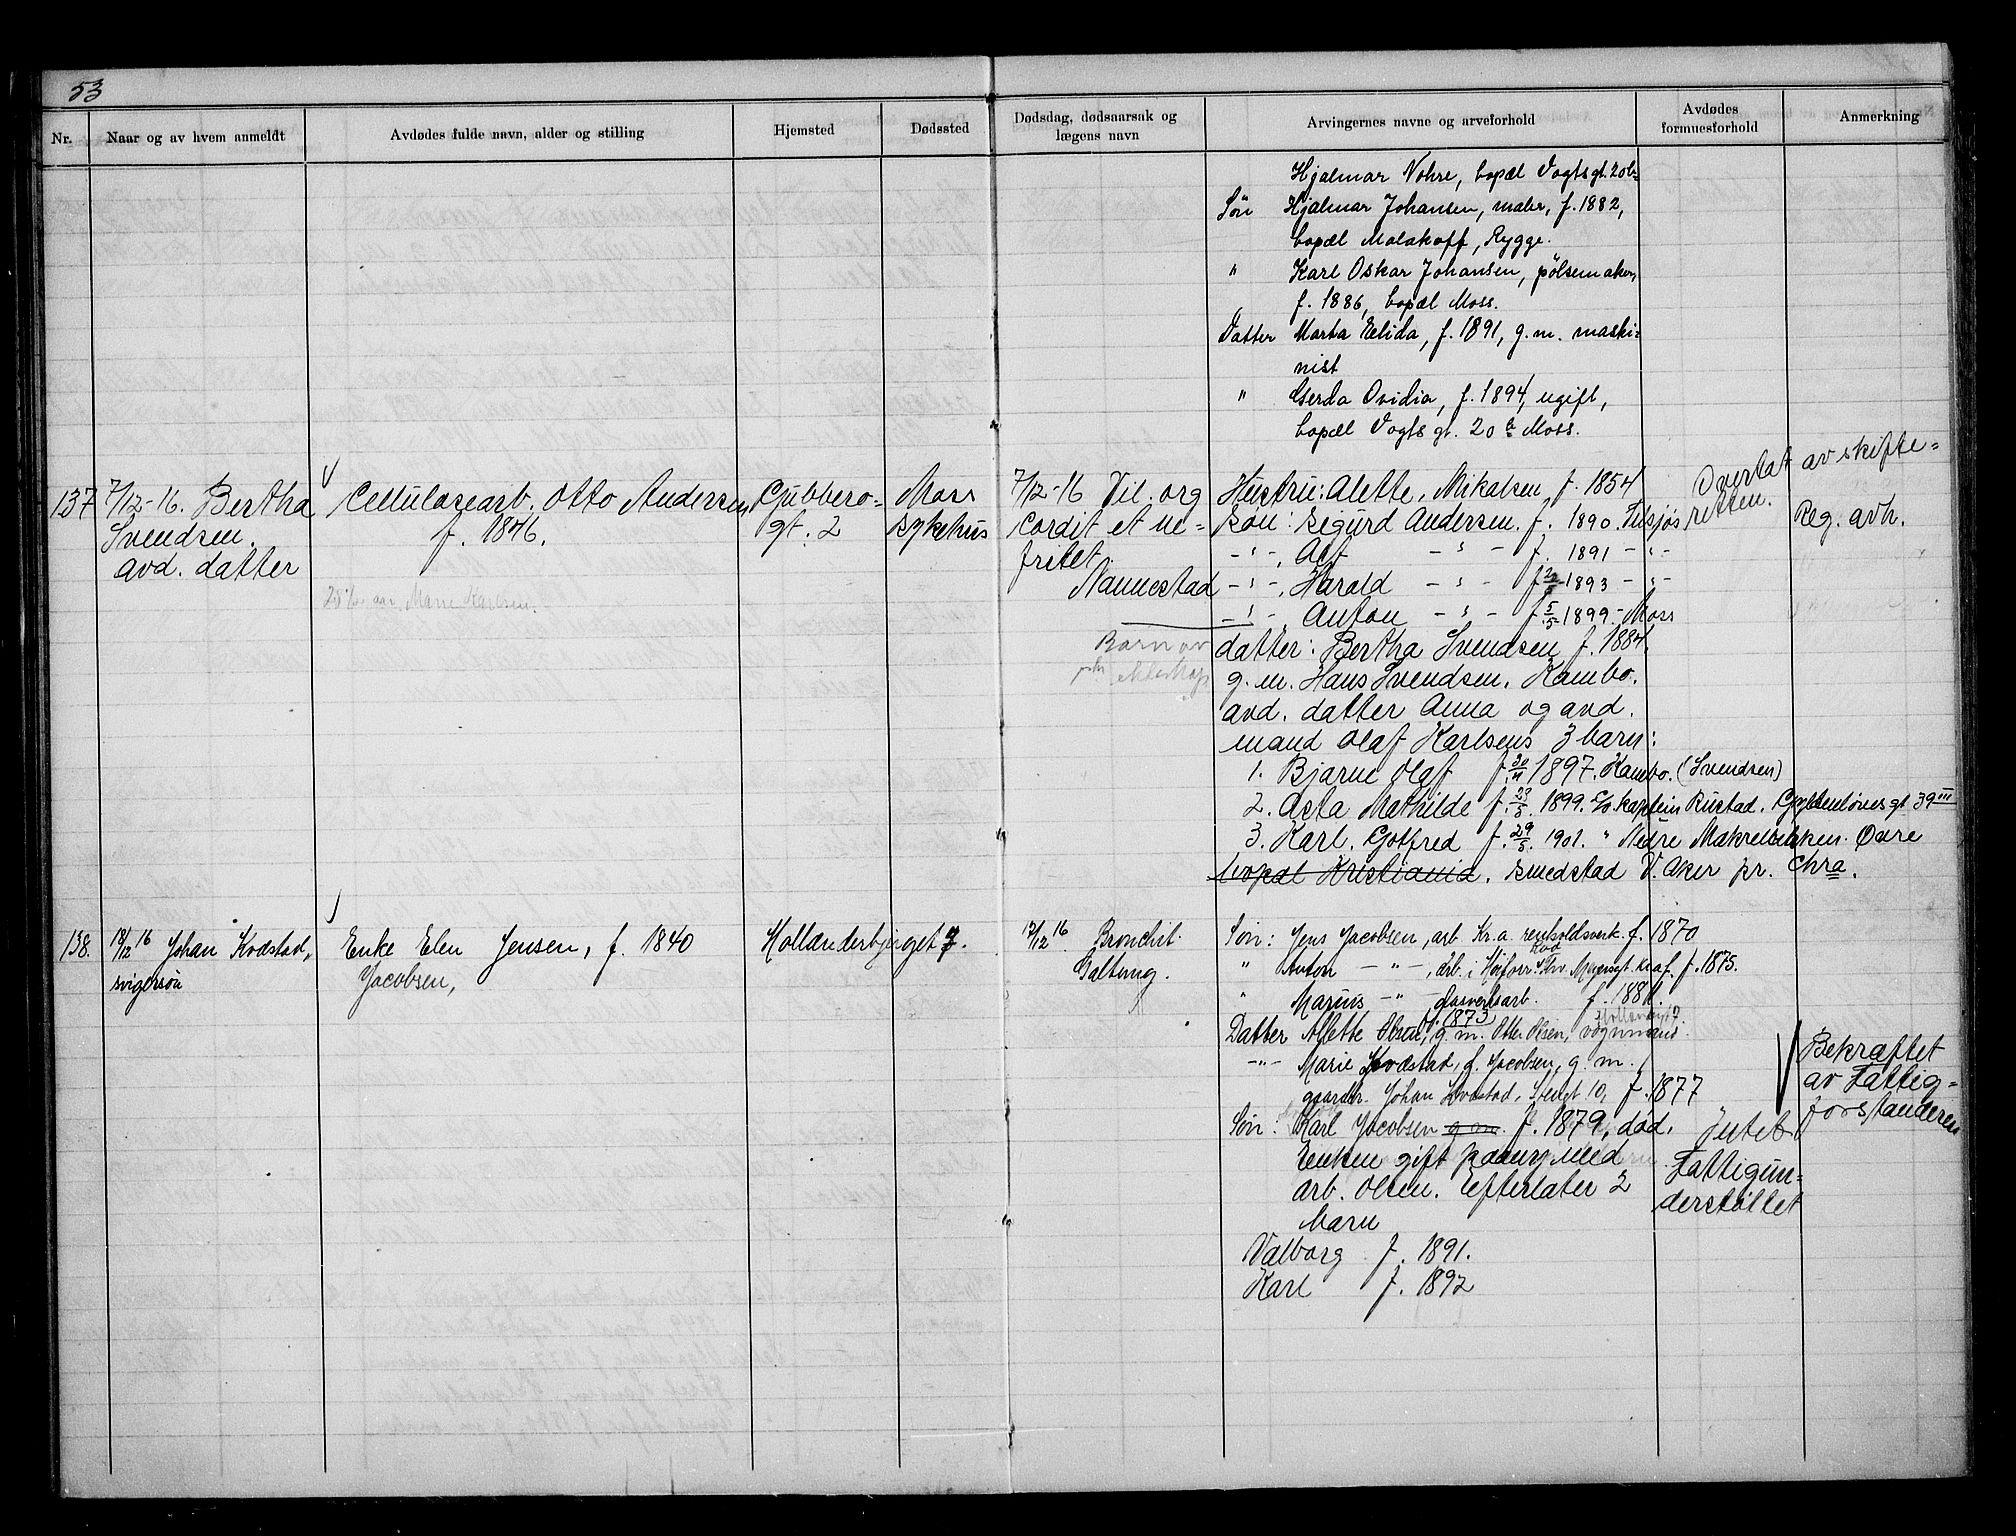 53
Nr.
Naar og av hvem anmeldt
Avdødes fulde navn, alder og stilling
Hjemsted
Dødssted
Dødsdag, dødsaarsak og
lægens navn
Arvingernes navne og arveforhold
Avdødes
formuesforhold
Anmerkning
Hjalmar Nohre, bopæl Vogtsgt. 20b
Søn Hjalmar Johansen, maler, f. 1882,
bopæl Malakoff, Rygge.
" Karl Oskar Johansen, pølsemaker,
f. 1886, bopæl Moss.
Datter Marta Elida, f. 1891, g. m. maski=
nist
" Gerda Ovidia, f. 1894, ugift,
bopæl Vogts gt. 20 b Moss.
137
7/12-16. Bertha
Svendsen.
avd. datter
Cellulosearb. Otto Andersen
f. 1846.
Marie Karlsen.
Gubbero-
gt. 2
Moss
sykehus
7/12-16 Vil. org
cordit et ne-
fritet
Nannestad
Hustru: Alette, Mikalsen, f. 1854
Søn: Sigurd Andersen. f. 1890. Tilsjøs
-"- Alf -"- f. 1891 -"-
-"- Harald -"- f. 22/5 1893 -"-
-"- Anton -"- f. 5/5 1899 - Moss
Barn av
ekteskap
datter: Bertha Svendsen f. 1884.
g. m. Hans Svendsen. Kambo.
avd. datter Anna og avd.
mand Olaf Karlsens 3 barn:
1. Bjarne Olaf f. 20/11 1897. Kambo. (Svendsen)
2. Asta Mathilde f. 23/5. 1899. c/o kaptein Rustad. Gyldenløves gt 39 III
3. Karl. Gotfred f. 29/5. 1901. " Nedre Makrelbekken. Øvre
bopæl Kristiania. Smedstad V. Aker pr. Chra.
Overlat av skifte-
retten.
Reg. avh.
138.
18/12 16 Johan Kvastad,
svigersøn
Enke Elen Jensen, f. 1840
Jacobsen,
Hollænderbjerget 7.
17/12 16. Bronchit.
Galtung.
Søn: Jens Jacobsen, arb. Kr.a. renholdsverk. f. 1870
" Anton -"-, arb. i f. 1875.
" Marius -"- glasverksarb. f. 1881.
1873
Datter Alette Olsen, g. m. Otto Olsen, vognmand.
-"- Marie Kvastad, f. Jacobsen, g. m.
gaardbr. Johan Kvastad, 10, f. 1877
Søn: Karl Jacobsen g. m. f. 1879, død.
Enken gift paany med
arb. Olsen. Efterlater 2
barn
Valborg f. 1891.
Karl f. 1892
Intet
Fattigun-
derstøttet
Bekræftet
av Fattig-
forstanderen